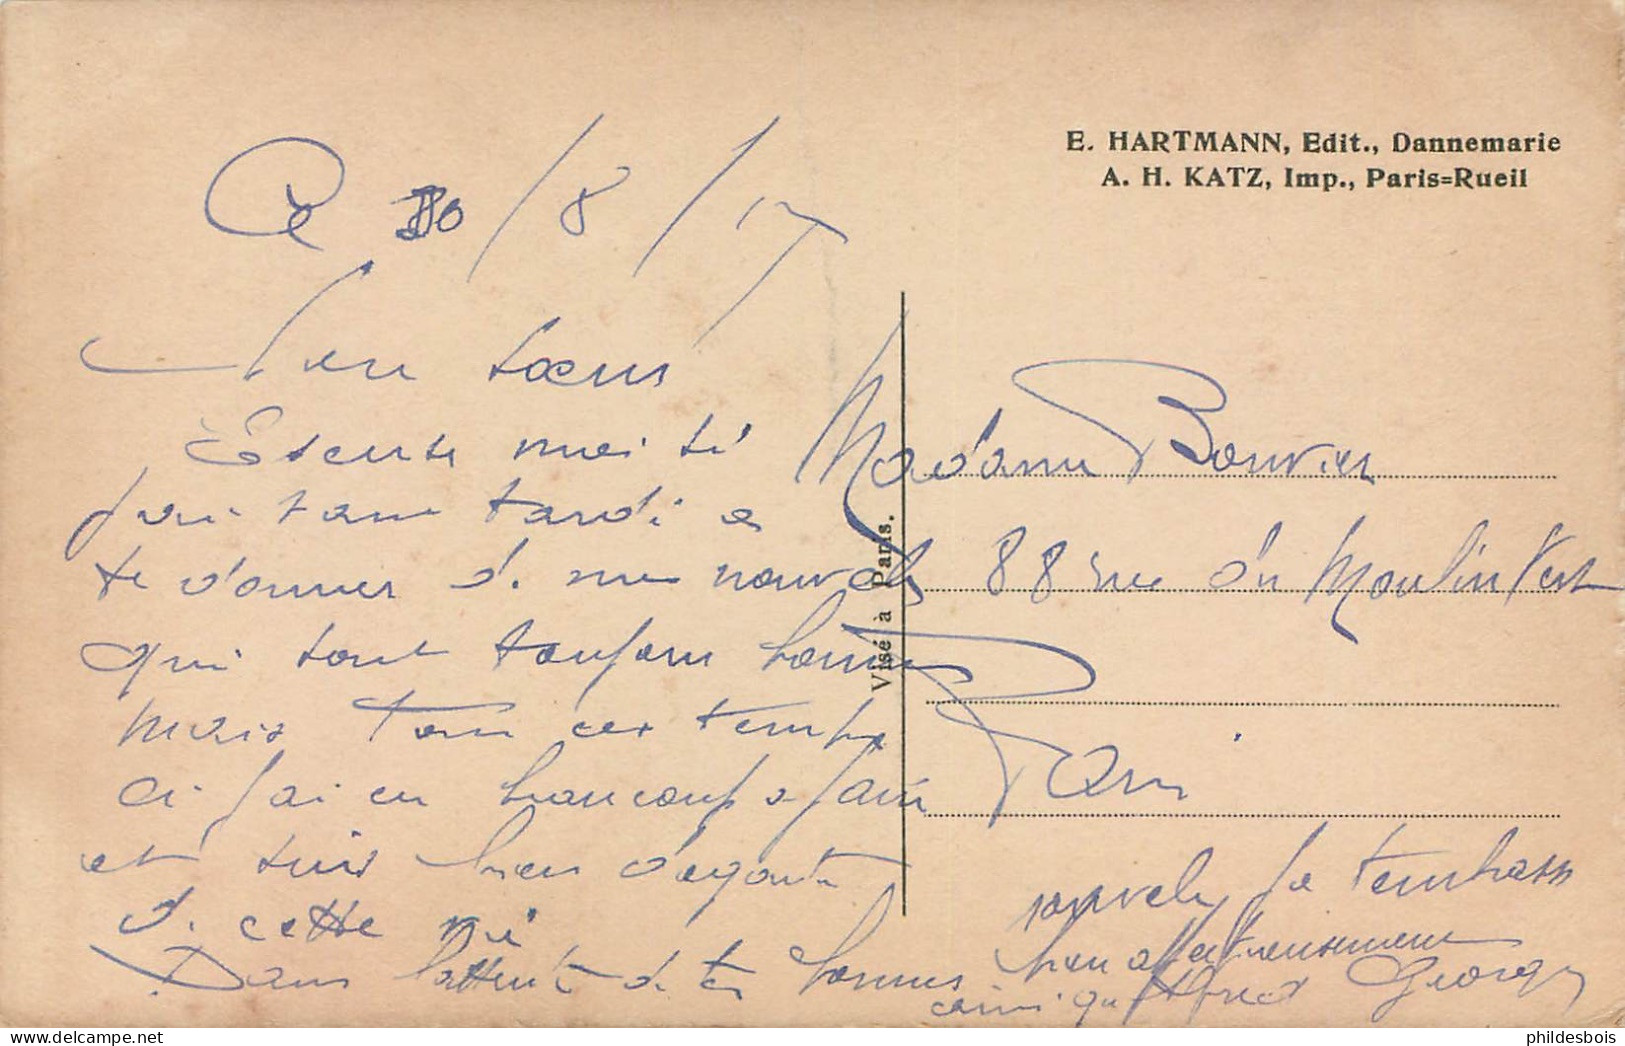 E. HARTMANN, Edit., Dannemarie
A. H. KATZ, Imp., Paris=Rueil
Visé à Paris.
Ce 30/8/17
Mon sœur
Excuse moi si
j'ai tant tardé a
te donner de mes nouvelles
qui sont toujour bonnes
mais tous ces temps
ci j'ai eu beaucoup a faire
et suis bien dégouté
de cette vie
Dans l'attente de tes bonnes
nouvelles je t'embrasse
bien affectueusement
ainsi qu'Alfred Georges
Madame Bouvier
88 rue du Moulin Vert
Paris
phildesbois